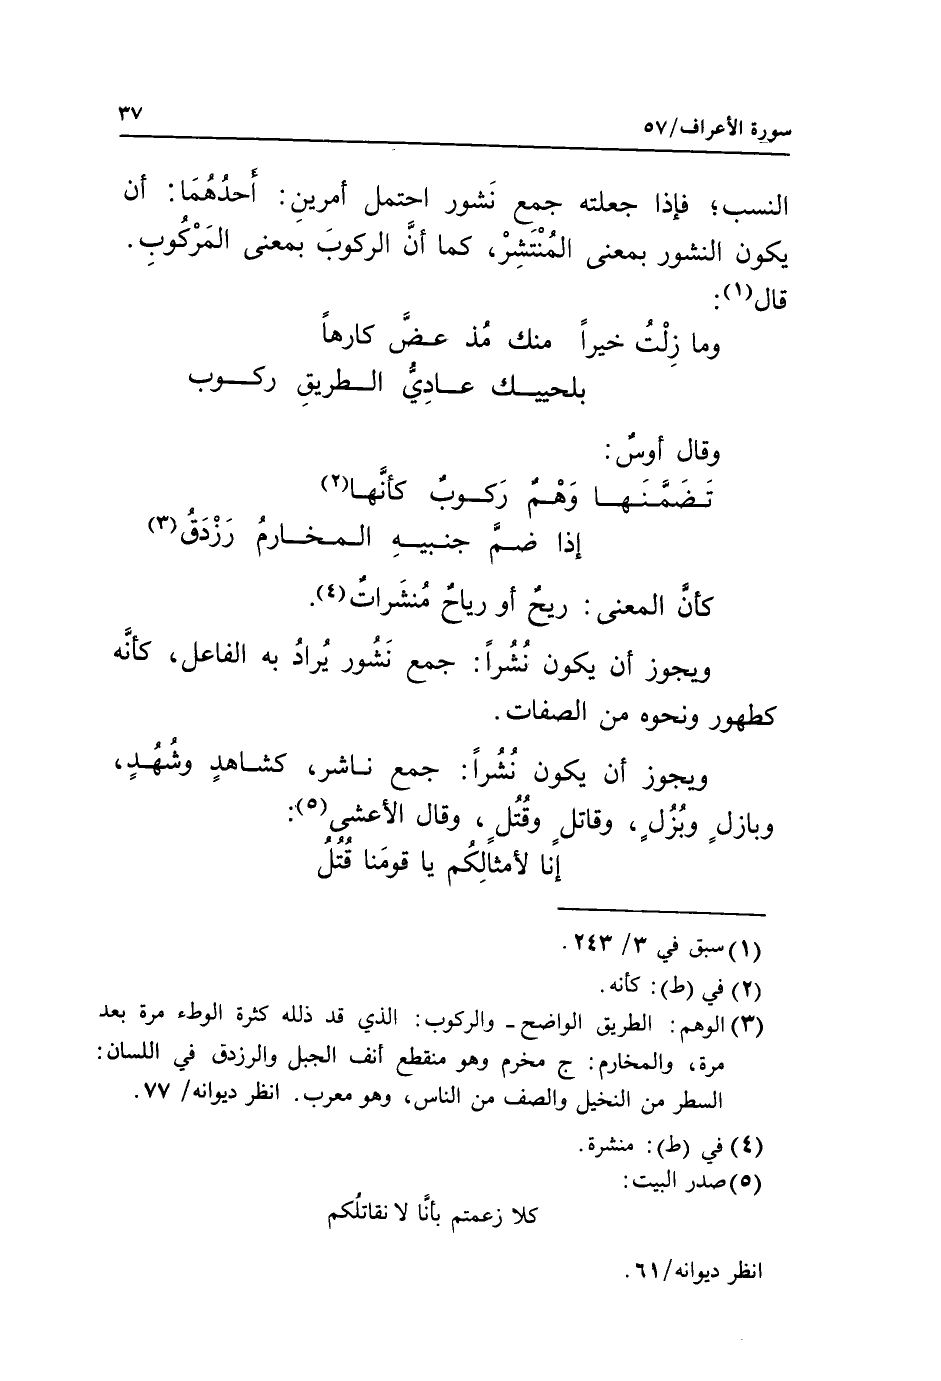 سورة الأعراف/٥٧
٣٧
النسب؛ فإذا جعلته جمع نَشور احتمل أمرينِ: أَحدُهُمَا: أن
يكون النشور بمعنى المُنْتَشِرْ، كما أنَّ الركوبَ بمعنى المَرْكُوبِ.
قال(١):
وما زِلْتُ خيراً منك مُذ عضَّ كارهاً
بلحييك عاديُّ الطريقِ ركوب
وقال أوسٌ:
تَضَمَّنَها وَهْمٌ رَكوبٌ كأنَّها(٢)
إذا ضمَّ جنبيهِ المخارمُ رَزْدَقُ(٣)
كأنَّ المعنى: ريحٌ أو رياحٌ مُنشَراتٌ(٤).
ويجوز أن يكون نُشُراً: جمع نَشُور يُرادُ به الفاعل، كأنَّه
كطهور ونحوه من الصفات.
ويجوز أن يكون نُشُراً: جمع ناشر، كشاهدٍ وشُهُدٍ،
وبازلٍ وبُزُلٍ، وقاتلٍ وقُتُلٍ، وقال الأعشى(٥):
إنا لأمثالِكُم يا قومَنا قُتُلُ
(١) سبق في ٣/ ٢٤٣.
(٢) في (ط): كأنه.
(٣) الوهم: الطريق الواضح - والركوب: الذي قد ذلله كثرة الوطء مرة بعد
مرة، والمخارم: ج مخرم وهو منقطع أنف الجبل والرزدق في اللسان:
السطر من النخيل والصف من الناس، وهو معرب. انظر ديوانه/ ٧٧.
(٤) في (ط): منشرة.
(٥) صدر البيت:
كلا زعمتم بأنَّا لا نقاتلُكم
انظر ديوانه/٦١.